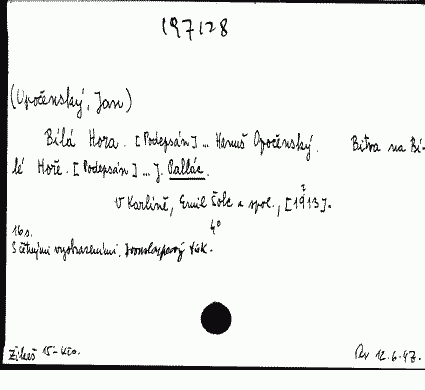 197128
(Opočenský, Jan)
Bílá Hora. [Podepsán] ... Hanuš Opočenský. Bitva na Bí-
lé Hoře. [Podepsán] ... J. Pallác.
V Karlíně, Emil Šolc a spol., [1913].
?
16 s. 4°
S četnými vyobrazeními. Dvousloupcový tisk.
Zikeš 15-
12.6.47.